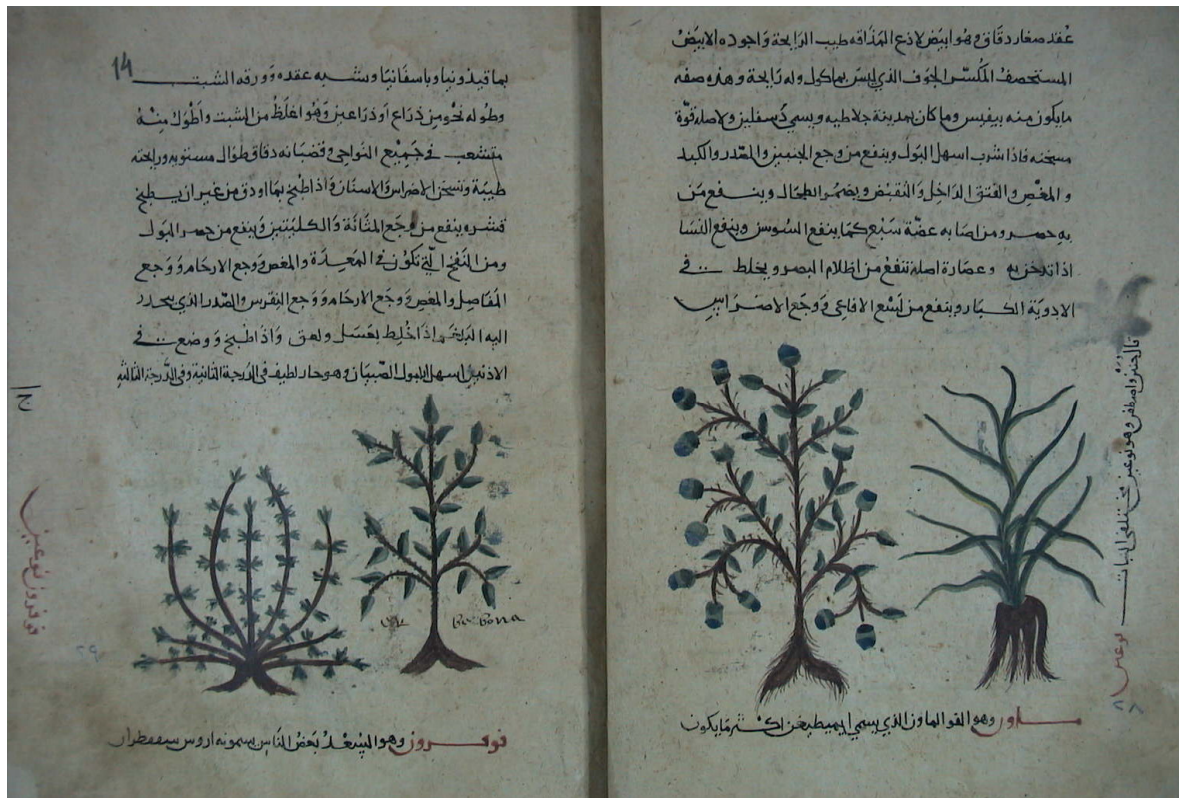 عقد صغار دقاق وهو ابيض لاذع المذاقه طيب الرايحة واجوده الابيض
المستحصف المكسر الجوف الذي ليس بماكول وله رايحة وهذه صفه
مايكون منه بيفيس وما كان بمدينة جلاطيه ويسمي ولاصله قوّة
مسخنه فاذا شرب اسهل البول وينفع من وجع الجنبين والصّدر والكبد
والمغص والفتق الداخل والنقبض ويضمر الطحال وينفع من
به حصر ومن اصابه عضّة سبع كما ينفع السوس وينفع النسا
اذا تدخن به وعصارة اصله تنفع من اظلام البصر ويخلط في
الادوية الكبار وينفع من لسع الافاعي ووجع الاضراس
قال وهو نوعين مختلفي النبات
نوعين
٢٨
وهو الفو الماون الذي يسمي اكثر مايكون
14
بماقيذونيا وباسفانيا وشبه عقده وورقه الشبت
وطوله نحو من ذراع او ذراعين وهو اغلظ من الشبت واطول منه
متشعب في جميع النواحي وقضبانه دقاق طوال مستويه ورايحته
طيبة وتسخن الاضراس والاسنان واذا طبخ بما اودق من غير ان يطبخ
فشرب وينفع من وجع المثانة والكليتين وينفع من حصر البول
ومن النفخ التي تكون في المعدة والمغص ووجع الارحام ووجع
المفاصل والمغص ووجع الارحام ووجع النقرس والصّدر الذي ينحدر
اليه البلغم اذا خلط بعسل ولعق واذا طبخ ووضع في
الاذنين اسهل البول الصبيان وهو حار لطيف في الدرجة الثانية وفي الدّرجة الثالثة
Bona
نوعين
٢٩
وهو السعد بعض الناس يسمونه اروس